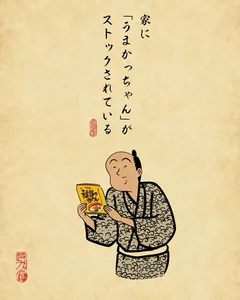 家に
「うまかっちゃん」が
ストックされている